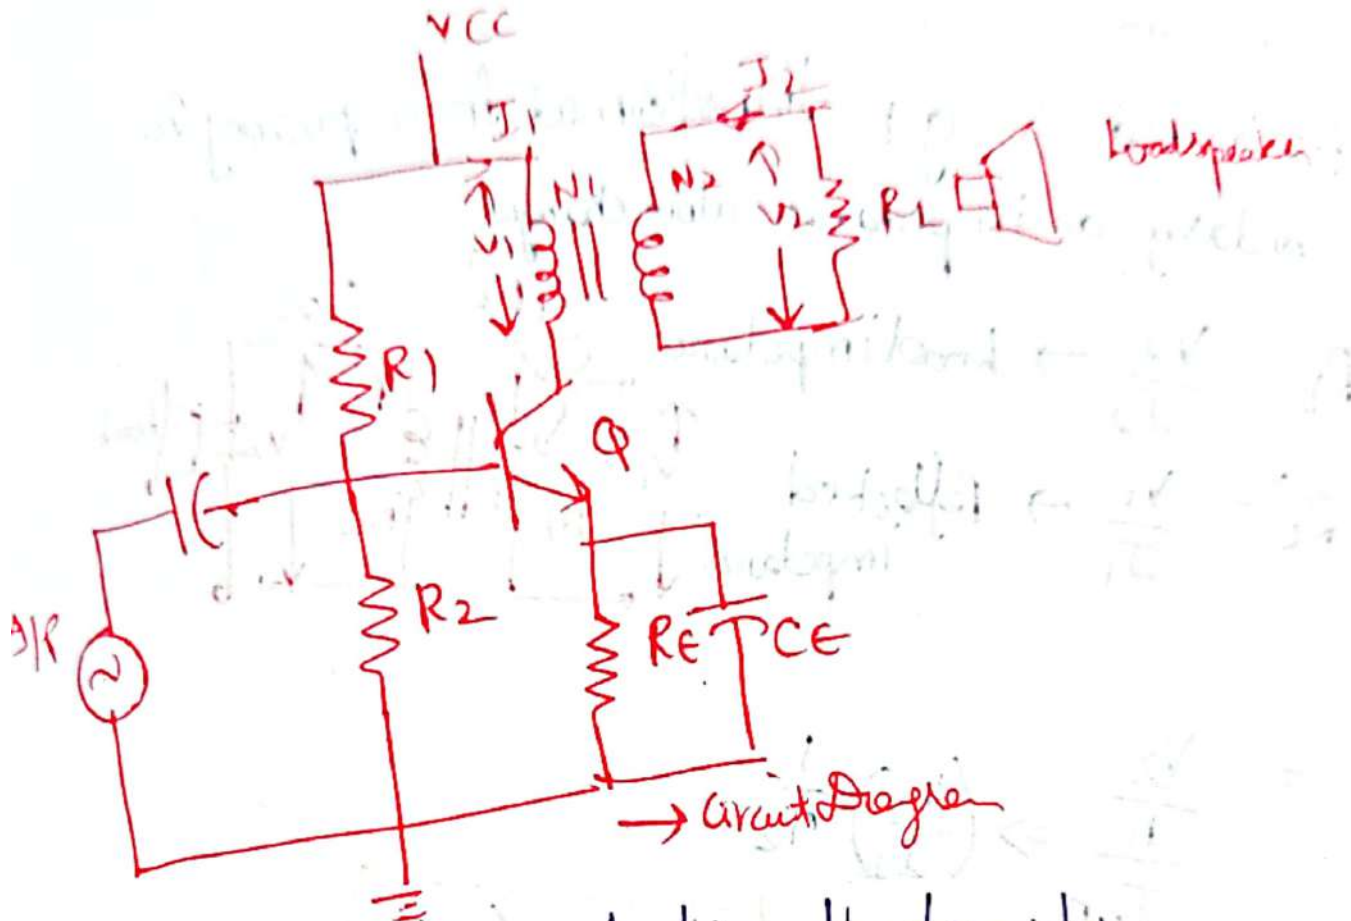 VCC
I1
I2
V1
N1
N2
V2
RL
Loudspeaker
R1
Q
R2
RE
CE
→ Circuit Diagram